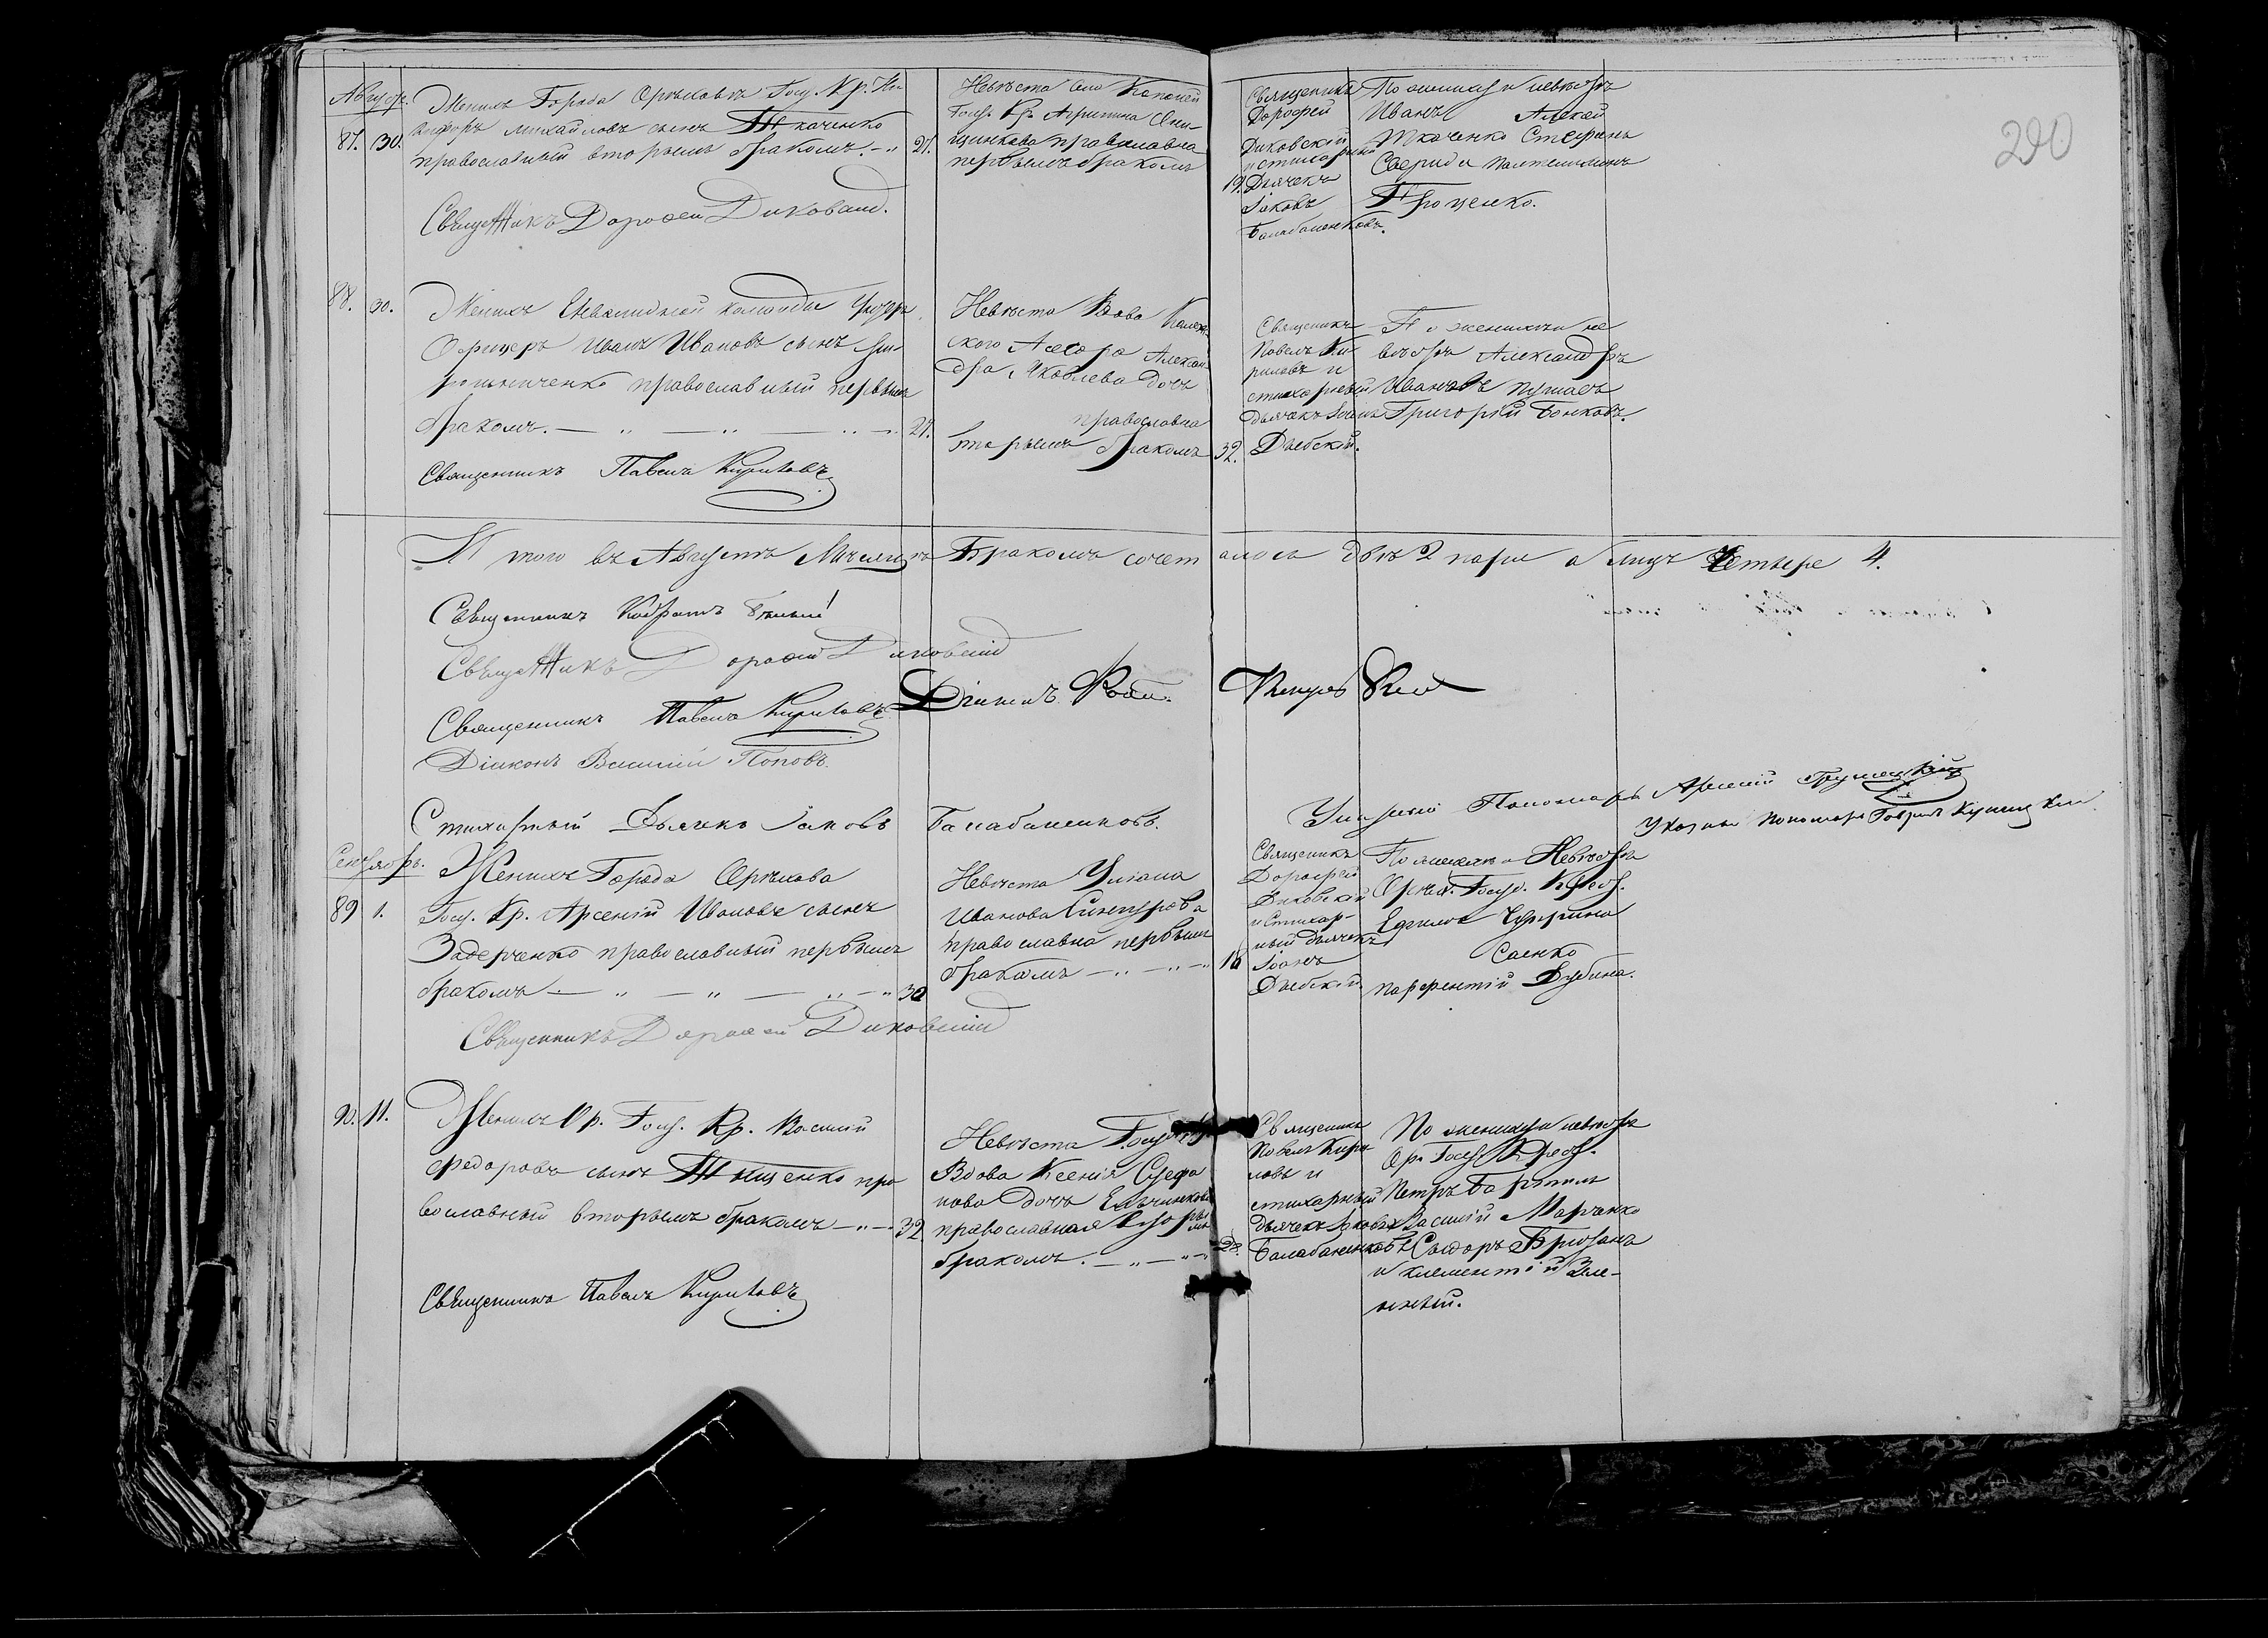 290
Август.
87. 30.
Женихъ Города Орѣхова Госу. Кр. Ни-
кифоръ Михайловъ сынъ Ткаченко
православный вторымъ бракомъ. 27.
Невѣста
Госу. Кр. Агрипина
православна
первымъ бракомъ 19.
Священикъ
Дорофей
Диковскій
и стихарный
Дьячекъ
Іаковъ
Балабаненковъ.
По женихѣ и невѣстѣ
Иванъ Алексѣй
Ткаченко Стефанъ
Свирид и Пантелимонъ
Проценко.
Священникъ Дорофей Диковскій.
88. 30.
Женихъ Инвалидной команды Унтеръ
Офицеръ Иванъ Ивановъ сынъ
православный первымъ
бракомъ. 27.
Невѣста Вдова Колеж-
ского Асесора Алексан-
дра Яковлева Дочь
православна
вторымъ бракомъ 32.
Священикъ
Павелъ Ки-
риловъ и
стихарный
дьячекъ Іоанъ
Дѣбскій.
По женихѣ и не
вѣстѣ Александръ
Ивановъ
Григорій Бонковъ.
Священникъ Павелъ Кириловъ
И того въ Августѣ Мѣсяцѣ Бракомъ сочет алось двѣ 2 пары а лицъ Четыре 4.
Священникъ Кодратъ Бѣлый
Священникъ Дорофей Диковскій
Священникъ Павелъ Кириловъ
Діаконъ
Діаконъ Василій Поповъ.
Стихарный Дьячекъ Іаковъ Балабаненковъ.
Указный Пономарь Арсеній
Указный Пономарь Гавріилъ
Сентябрь.
89 1.
Женихъ Города Орѣхова
Госу. Кр. Арсеній Ивановъ сынъ
Задерченко православный первымъ
бракомъ 30
Невѣста Уліана
Иванова
православна первымъ
бракомъ 18
Священикъ
Дорофей
Диковскій
и Стихар-
ный дьячекъ
Іоанъ
Дѣбскій
По женихѣ и Невѣстѣ
Орѣх. Госуд. Крест.
Ефимъ
Саенко
Парфентій Дубина.
Священникъ Дорофей Диковскій
90. 11.
Женихъ Ор. Госу. Кр. Василій
Федоровъ сынъ Тищенко пра
вославный вторымъ бракомъ 32
Невѣста Госу. Кр.
Вдова Ксенія Стефа
нова Дочь
православная вторымъ
бракомъ. 28.
Священикъ
Павелъ Кири-
ловъ и
стихарный
дьячекъ Іаковъ
Балабаненковъ
По женихѣ и невѣстѣ
Ор. Госу. Крест.
Петръ
Василій Марченко
Сидоръ
и Климентій Зеле-
ный.
Священникъ Павелъ Кириловъ